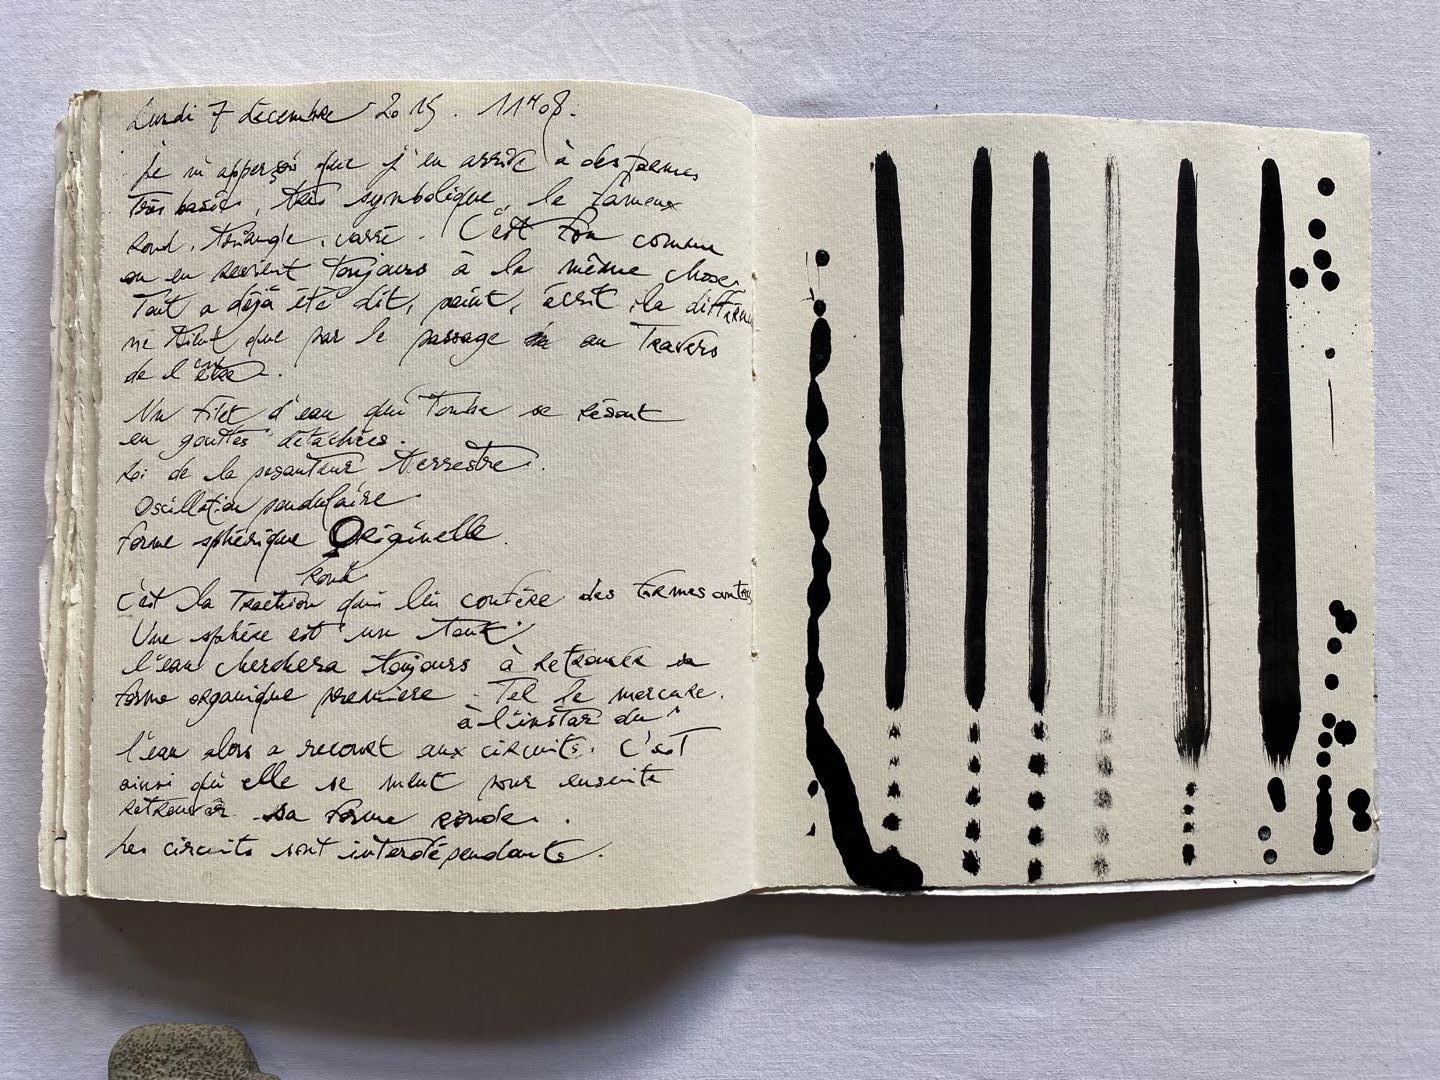 Lundi 7 décembre 2015. 11H08.
Je m'apperçois que j'en arrive à des formes
très basic, très symbolique, le fameux
rond, triangle, carré. C'est fou comme
on en revient toujours à la même chose,
Tout a déjà été dit, peint, écrit, la différence
ne tient que par le passage au travers
de l'être.
Un filet d'eau qui tombe se résout
en gouttes détachées.
Loi de la pesanteur terrestre.
Oscillation pendulaire
forme sphérique Originelle.
ronde
C'est la traction qui lui confère des formes autres
Une sphère est un tout.
l'eau cherchera toujours à retrouver sa
forme organique première. Tel le mercure.
à l'instar du
l'eau alors a recourt aux circuits. C'est
ainsi qu'elle se meut pour ensuite
retrouver sa forme ronde.
Les circuits sont interdépendants.